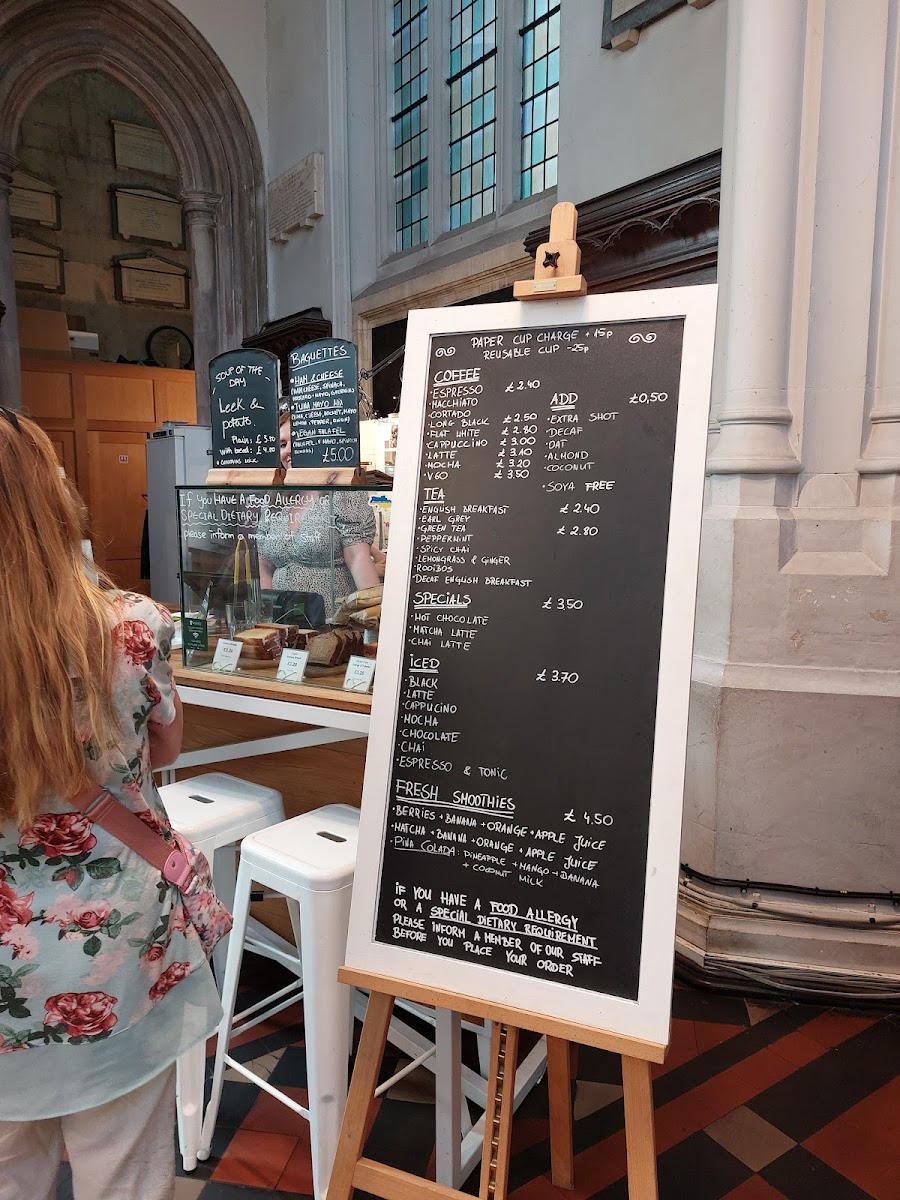 SOUP OF THE
DAY
Leek &
potato.
Plain: £
with bread: £
BAGUETTES
HAM & CHEESE
TUNA MAYO
VEGAN FALAFEL
£5.00
If you HAVE A FOOD ALLERGY OR
SPECIAL DIETARY REQUIREMENT
please inform a member of staff
PAPER CUP CHARGE + 15p
REUSABLE CUP -25p
COFFEE
·ESPRESSO £ 2.40
·MACCHIATO
·CORTADO
·LONG BLACK £ 2.50
·FLAT WHITE £ 2.80
·CAPPUCCINO £ 3.00
·LATTE £ 3.10
·MOCHA £ 3.20
·V60 £ 3.50
ADD £0,50
·EXTRA SHOT
·DECAF
·OAT
·ALMOND
·COCONUT
·SOYA FREE
TEA
·ENGLISH BREAKFAST £ 2.40
·EARL GREY
·GREEN TEA £ 2.80
·PEPPERMINT
·SPICY CHAI
·LEMONGRASS & GINGER
·ROOIBOS
·DECAF ENGLISH BREAKFAST
SPECIALS £ 3.50
·HOT CHOCOLATE
·MATCHA LATTE
·CHAI LATTE
ICED £ 3.70
·BLACK
·LATTE
·CAPPUCINO
·MOCHA
·CHOCOLATE
·CHAI
·ESPRESSO & TONIC
FRESH SMOOTHIES £ 4.50
·BERRIES + BANANA + ORANGE + APPLE JUICE
·MATCHA + BANANA + ORANGE + APPLE JUICE
·PINA COLADA: PINEAPPLE + MANGO + BANANA
+ COCONUT MILK
IF YOU HAVE A FOOD ALLERGY
OR A SPECIAL DIETARY REQUIREMENT
PLEASE INFORM A MEMBER OF OUR STAFF
BEFORE YOU PLACE YOUR ORDER